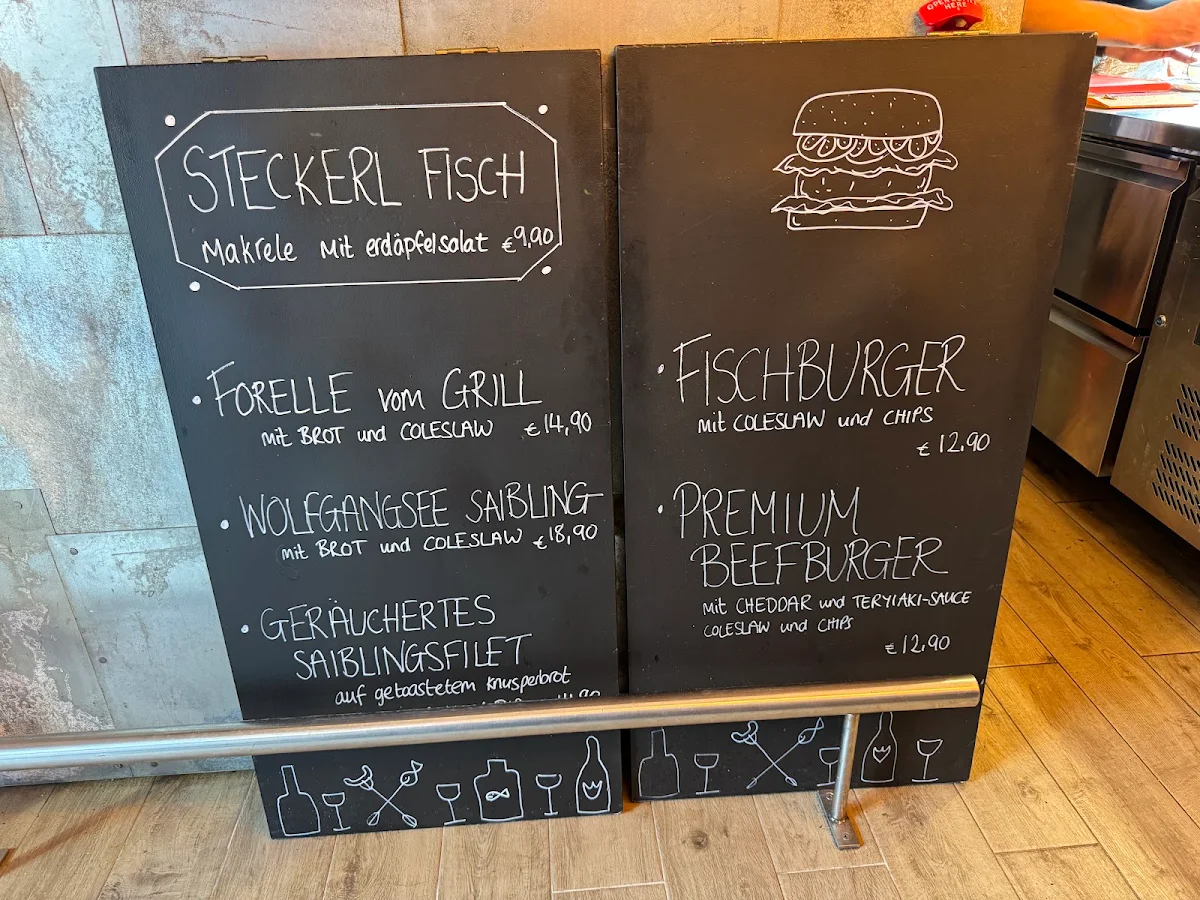 OPEN
HERE
STECKERL FISCH
Makrele mit erdäpfelsalat €9,90
• FORELLE vom GRILL
mit BROT und COLESLAW €14,90
• WOLFGANGSEE SAIBLING
mit BROT und COLESLAW €18,90
• GERÄUCHERTES
SAIBLINGSFILET
auf getoastetem Knusperbrot
• FISCHBURGER
mit COLESLAW und CHIPS
€12,90
• PREMIUM
BEEFBURGER
mit CHEDDAR und TERYIAKI-SAUCE
COLESLAW und CHIPS
€12,90